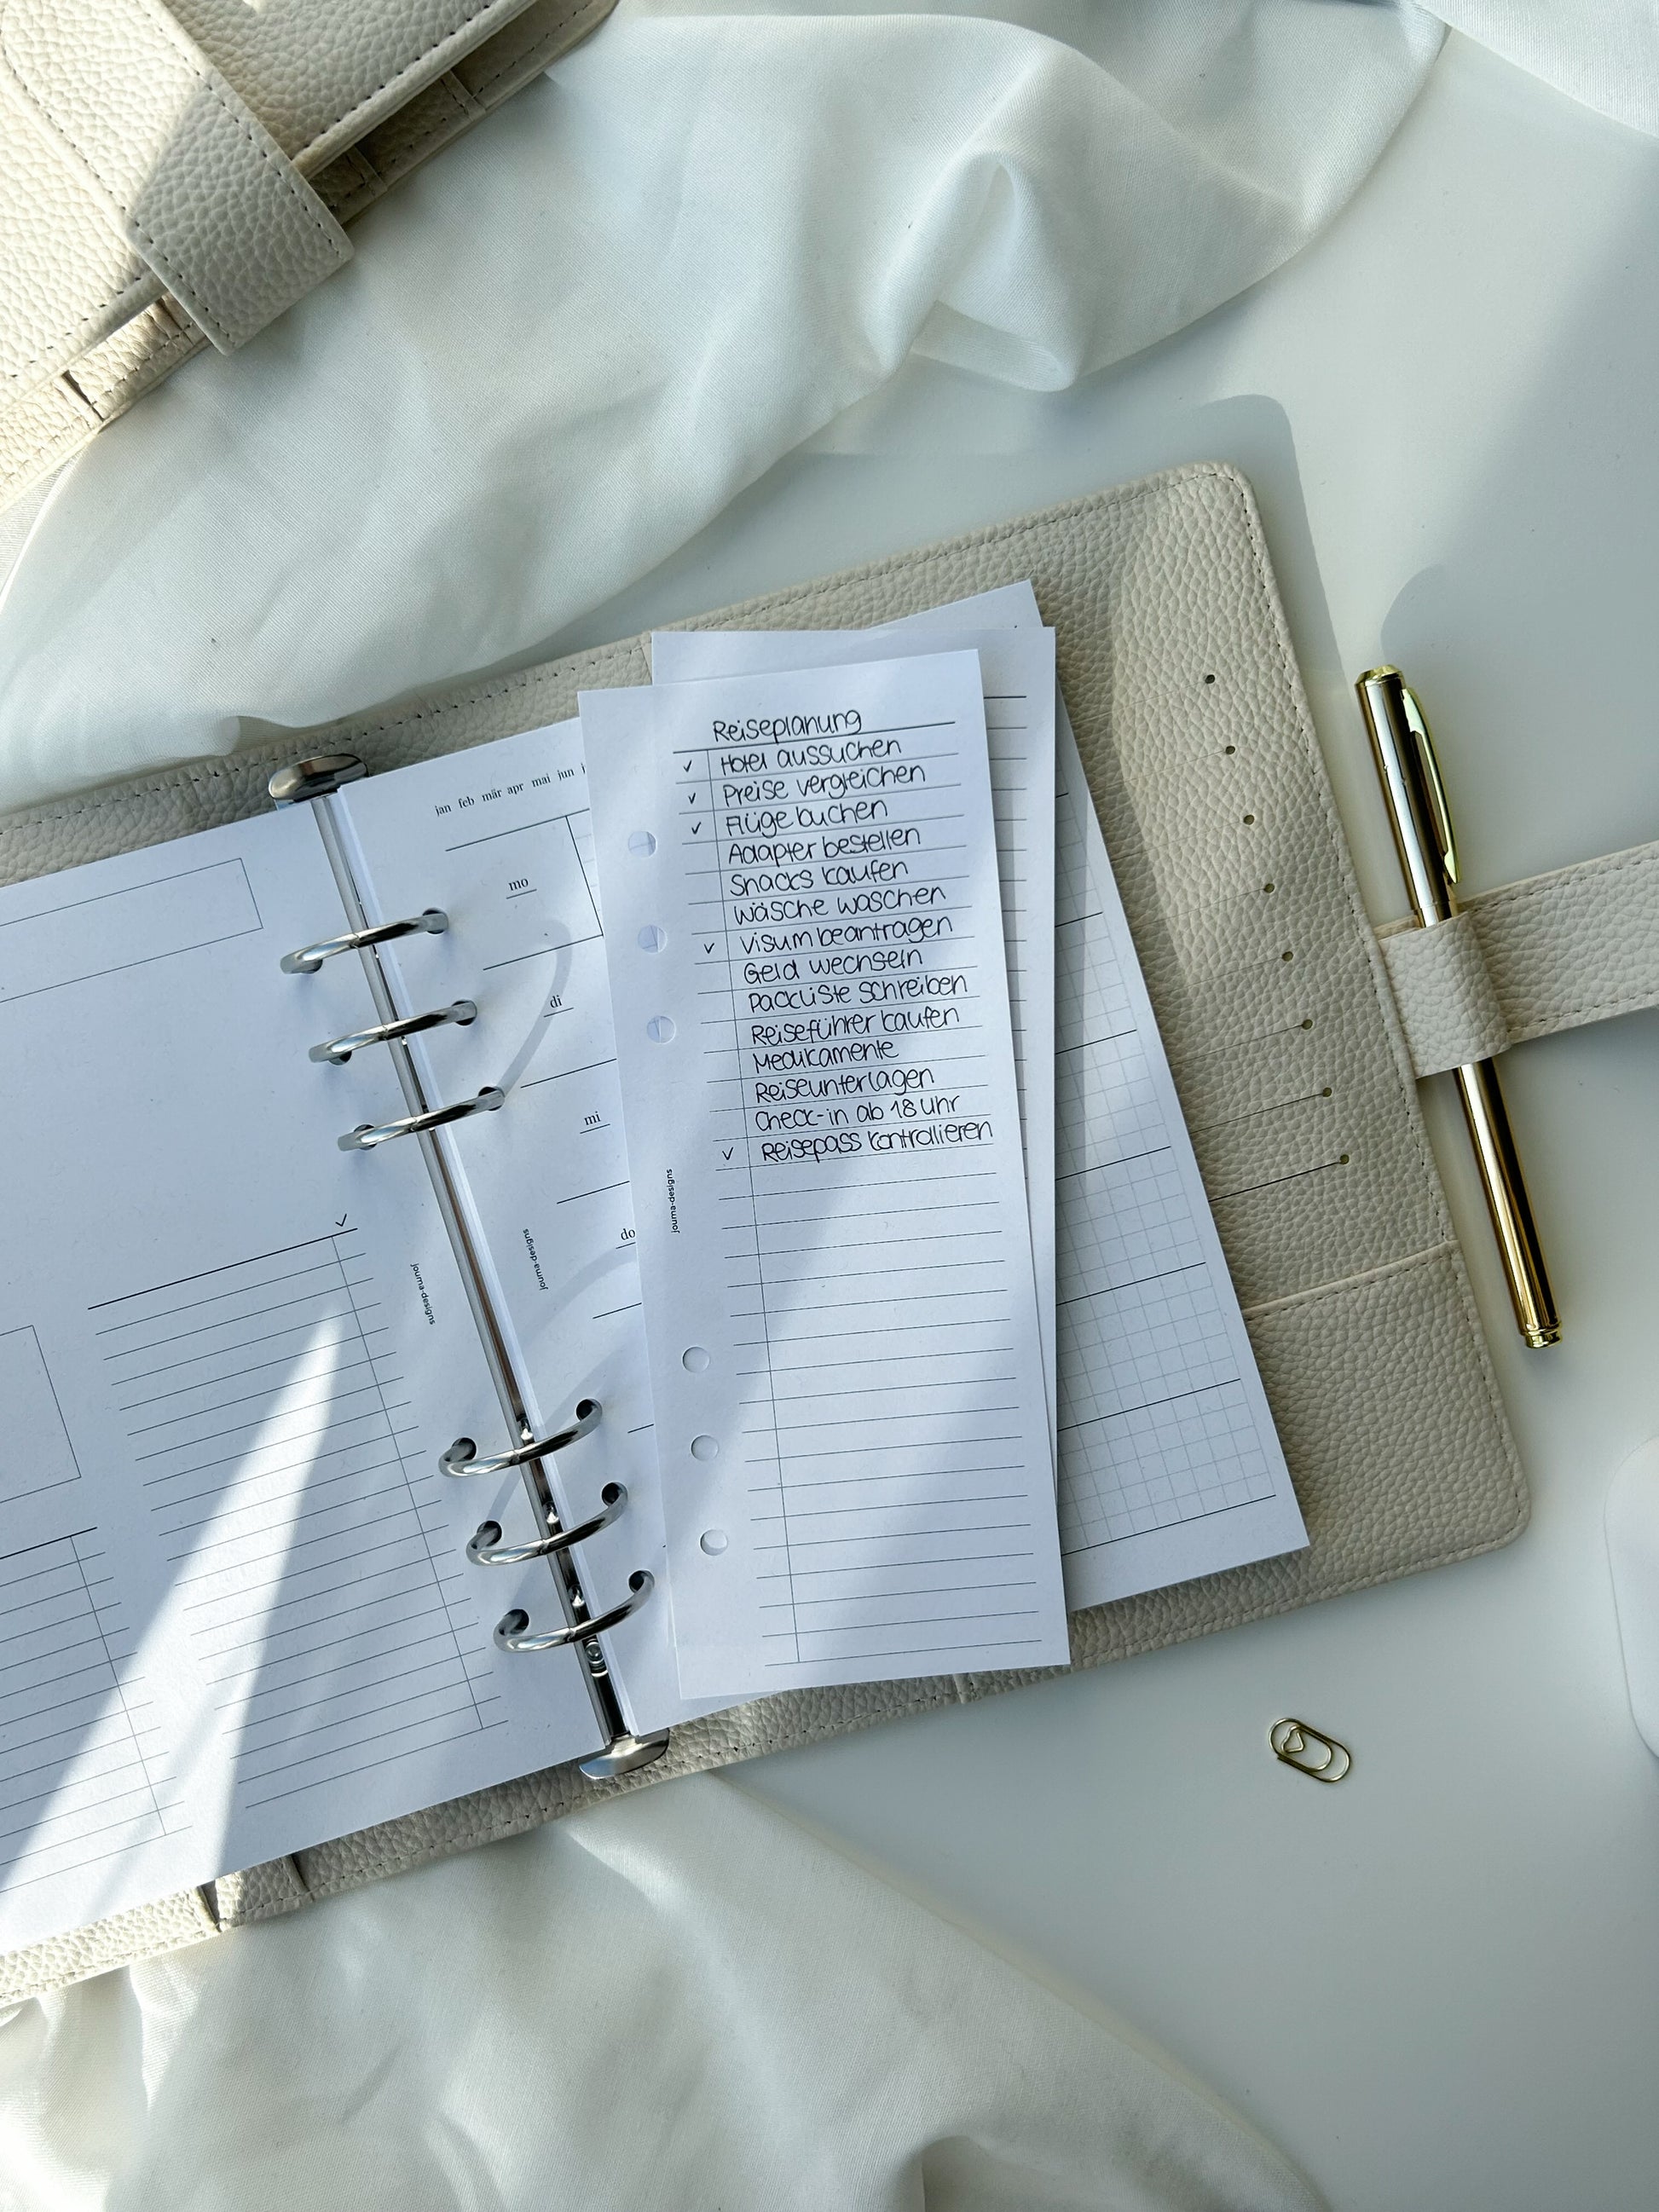 Reiseplanung
✓ Hotel aussuchen
✓ Preise vergleichen
✓ Flüge buchen
Adapter bestellen
Snacks kaufen
Wäsche waschen
✓ Visum beantragen
Geld wechseln
Packliste schreiben
Reiseführer kaufen
Medikamente
Reiseunterlagen
Check-in ab 18 Uhr
✓ Reisepass kontrollieren
journa-designs
jan feb mär apr mai jun
mo
di
mi
do
journa-designs
✓
journa-designs